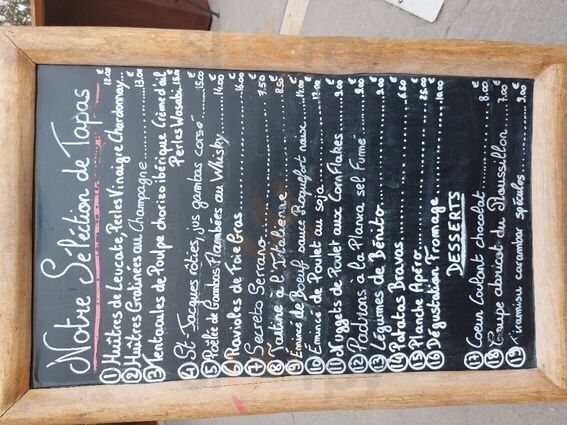 Notre Sélection de Tapas
① Huîtres de Leucate, Perles Vinaigre Chardonnay... 12.00 €
② Huîtres Gratinées au Champagne ........ 13.00 €
③ Tentacules de Poulpe chorizo ibérique Crème d'ail
Perles Wasabi 15.00 €
④ St-Jacques rôties, jus gambas corsé ... 15.00 €
⑤ Poêlée de Gambas Flambées au Whisky ... 14.00 €
⑥ Ravioles de Foie Gras ........ 16.00 €
⑦ Secreto Serrano ........ 7.50 €
⑧ Tartine à l'Italienne ........ 8.50 €
⑨ Émincé de Boeuf sauce Roquefort noix ... €
⑩ Émincé de Poulet au soja ........ 12.00 €
⑪ Nuggets de Poulet aux CornFlakes ........ 9.00 €
⑫ à la Planxa sel Fumé ... 9.00 €
⑬ Légumes de Bénito ........ 9.00 €
⑭ Patatas Bravas ........ 6.50 €
⑮ Planche Apéro ........ 25.00 €
⑯ Dégustation Fromage ........ 10.00 €
DESSERTS
⑰ Coeur Coulant chocolat ........ 8.00 €
⑱ Soupe abricot du Roussillon ........ 7.00 €
⑲ Tiramisu carambar spéculos ........ 9.00 €